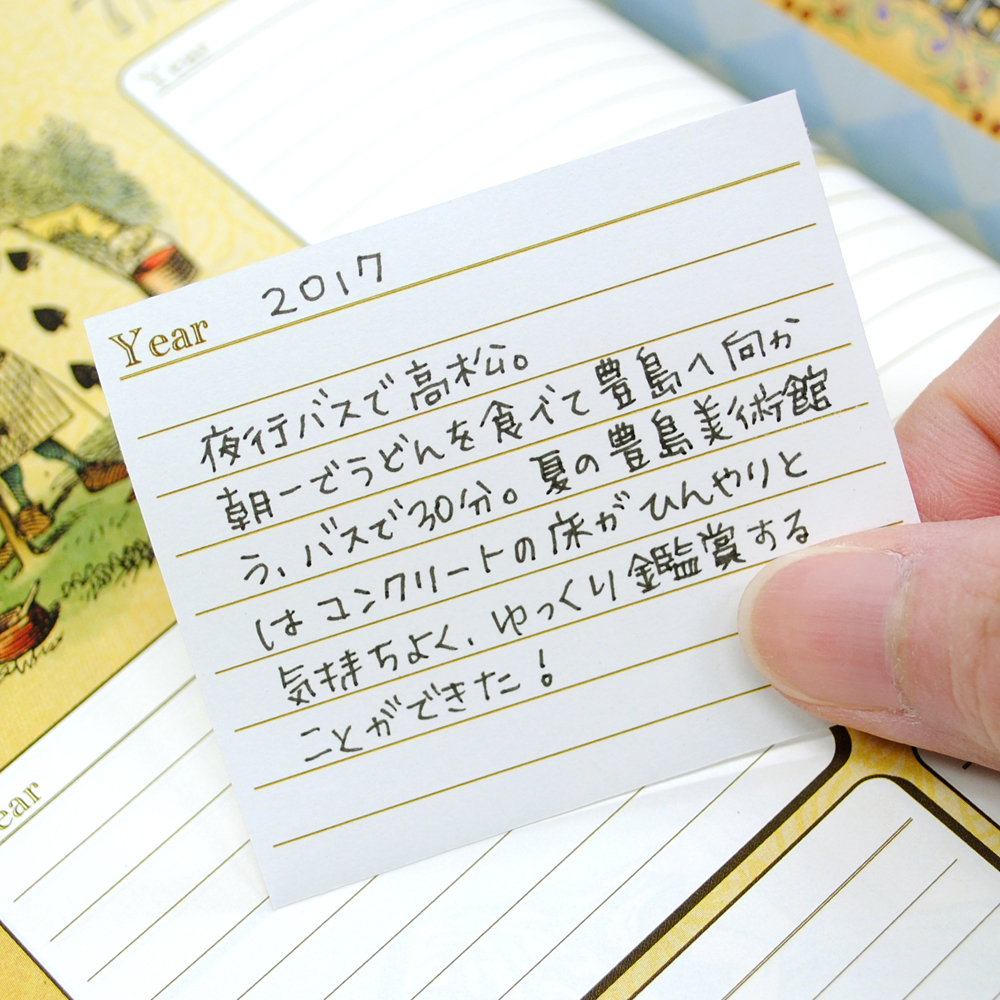 Year
Year 2017
夜行バスで高松。
朝一でうどんを食べて豊島へ向か
う、バスで30分。夏の豊島美術館
はコンクリートの床がひんやりと
気持ちよく、ゆっくり鑑賞する
ことができた!
ear